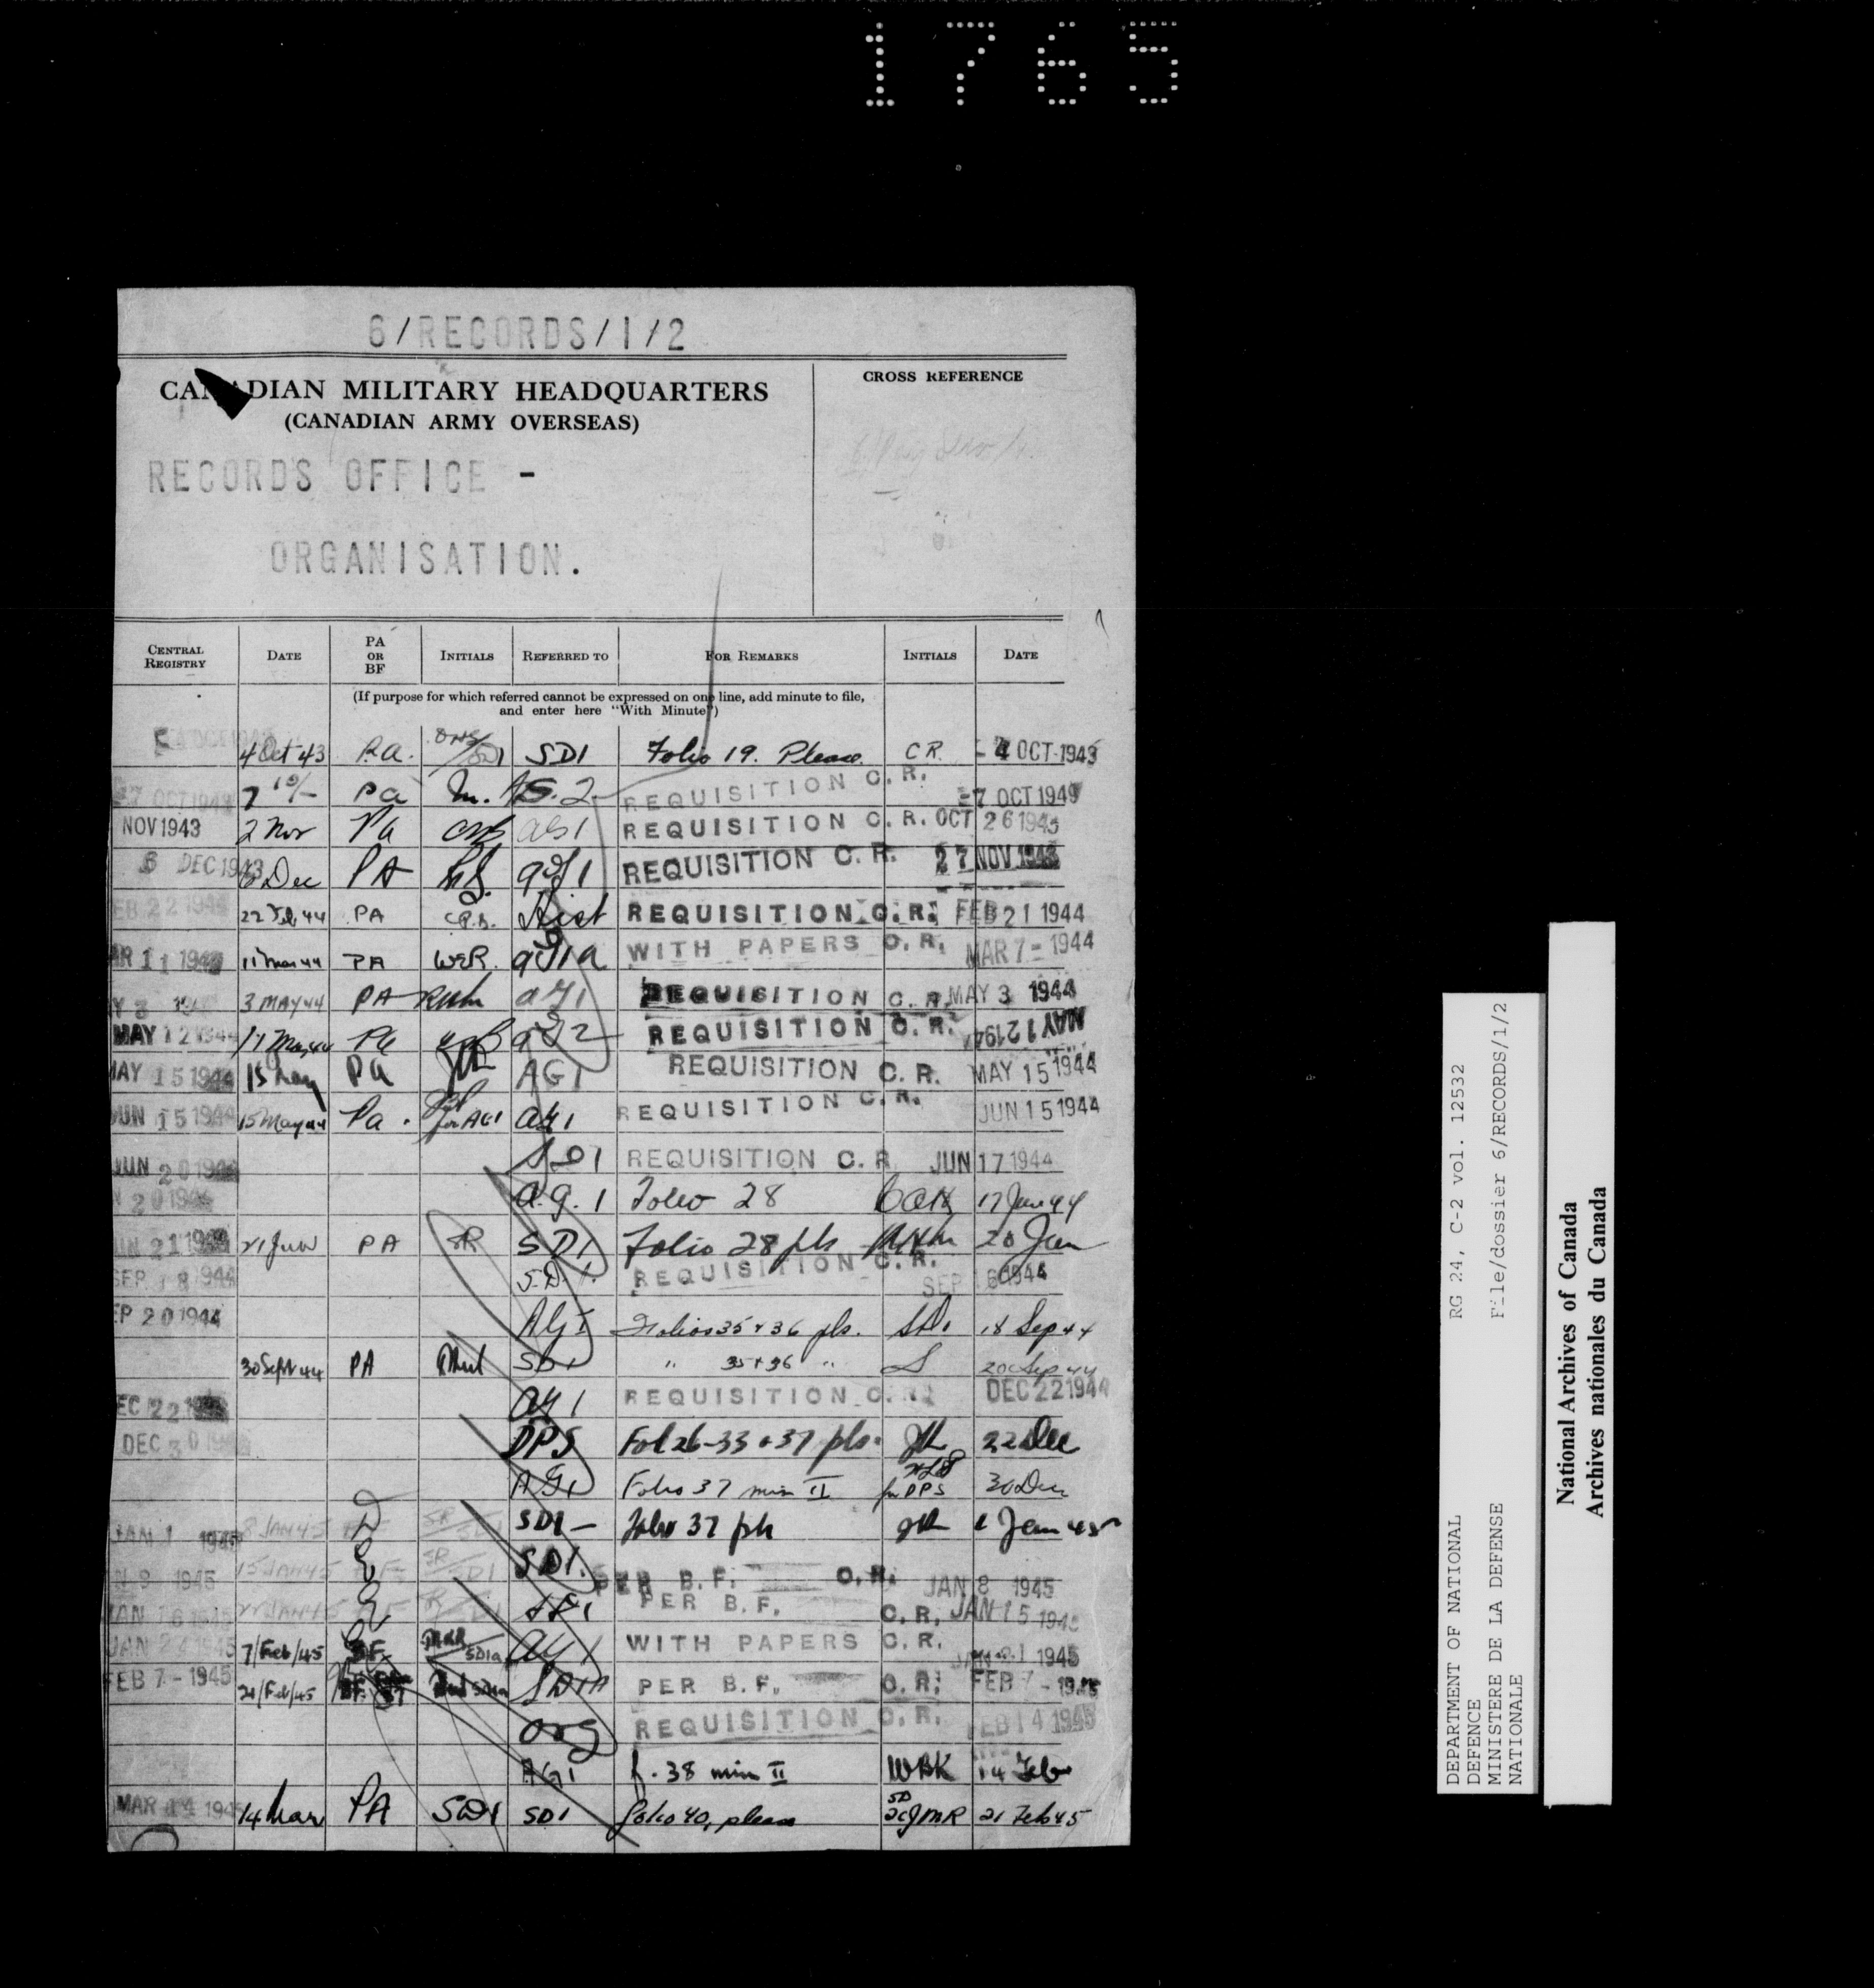 1765
6/RECORDS/1/2
CANADIAN MILITARY HEADQUARTERS
(CANADIAN ARMY OVERSEAS)
CROSS REFERENCE
RECORDS OFFICE -
ORGANISATION.
CENTRAL REGISTRY DATE PA OR BF INITIALS REFERRED TO FOR REMARKS INITIALS DATE
(If purpose for which referred cannot be expressed on one line, add minute to file,
and enter here "With Minute")
4 Oct 43 P.a. SD1 SD1 Folio 19. Please. C.R. - 4 OCT 1943
7 OCT 1943 7 10/- Pa REQUISITION C.R. -7 OCT 1943
NOV 1943 2 Nov Pa REQUISITION C.R. OCT 26 1943
6 DEC 1943 6 Dec PA REQUISITION C.R. 27 NOV 1943
EB 22 1944 22 Feb 44 PA C.P.S. Hist REQUISITION C.R. FEB 21 1944
AR 11 194 11 Mar 44 PA WER. WITH PAPERS C.R. MAR 7 - 1944
Y 3 3 MAY 44 PA ag1 REQUISITION C.R. MAY 3 1944
MAY 12 1944 Pa REQUISITION C.R. MAY 12 194
MAY 15 1944 15 May Pa AG1 REQUISITION C.R. MAY 15 1944
JUN 15 1944 15 May 44 Pa. for AG1 ag1 REQUISITION C.R. JUN 15 1944
JUN 20 194 SD1 REQUISITION C.R. JUN 17 1944
N 20 1944 a.g.1 Folio 28 17 Jun 44
UN 21 194 21 Jun PA SR SD1 Folio 28 pls 20 Jun
SEP 18 1944 S.D.1. REQUISITION C.R. SEP 16 1944
EP 20 1944 AG1 Folios 35 & 36 pls. SD1 18 Sep 44
30 Sept 44 PA SD1 " 35 & 36 " 20 Sep 44
EC 22 ag1 REQUISITION C.R. DEC 22 1944
DEC 30 DPS Fol 26-33 & 37 pls. 22 Dec
AG1 Folio 37 min II for DPS 30 Dec
JAN 1 1945 8 JAN 45 SR/SD1 SD1 - Folio 37 pls 1 Jan 45
N 8 1945 15 JAN 45 SR/SD1 SD1. PER B.F. C.R. JAN 8 1945
JAN 16 1945 22 JAN 45 SD1 PER B.F. C.R. JAN 15 194
JAN 24 1945 7/Feb/45 BF SD1a ag1 WITH PAPERS C.R. 1945
FEB 7 - 1945 21/Feb/45 SD1A PER B.F. C.R. FEB 7 - 1945
Org REQUISITION C.R. FEB 14 1945
AG1 f. 38 min II WBK 14 Feb
MAR 14 194 14 Mar PA SD1 SD1 folio 40, please 21 Feb 45
DEPARTMENT OF NATIONAL
DEFENCE
MINISTERE DE LA DEFENSE
NATIONALE
RG 24, C-2 vol. 12532
File/dossier 6/RECORDS/1/2
National Archives of Canada
Archives nationales du Canada